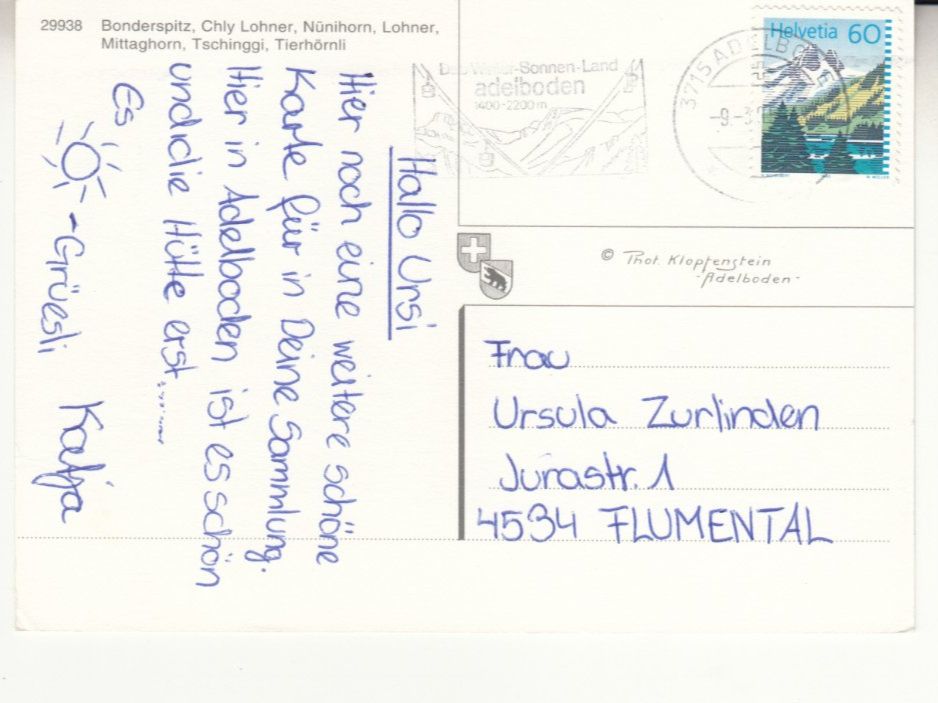 29938 Bonderspitz, Chly Lohner, Nünihorn, Lohner,
Mittaghorn, Tschinggi, Tierhörnli
Hallo Ursi
Hier noch eine weitere schöne
Karte für in Deine Sammlung.
Hier in Adelboden ist es schön
und die Hütte erst.......
Es
-Grüesli Katja
-Sonnen-Land
adelboden
1400-2200m
3715 ADELBO
-9.-3
Helvetia 60
© Phot. Klopfenstein
-Adelboden-
Frau
Ursula Zurlinden
Jurastr. 1
4534 FLUMENTAL